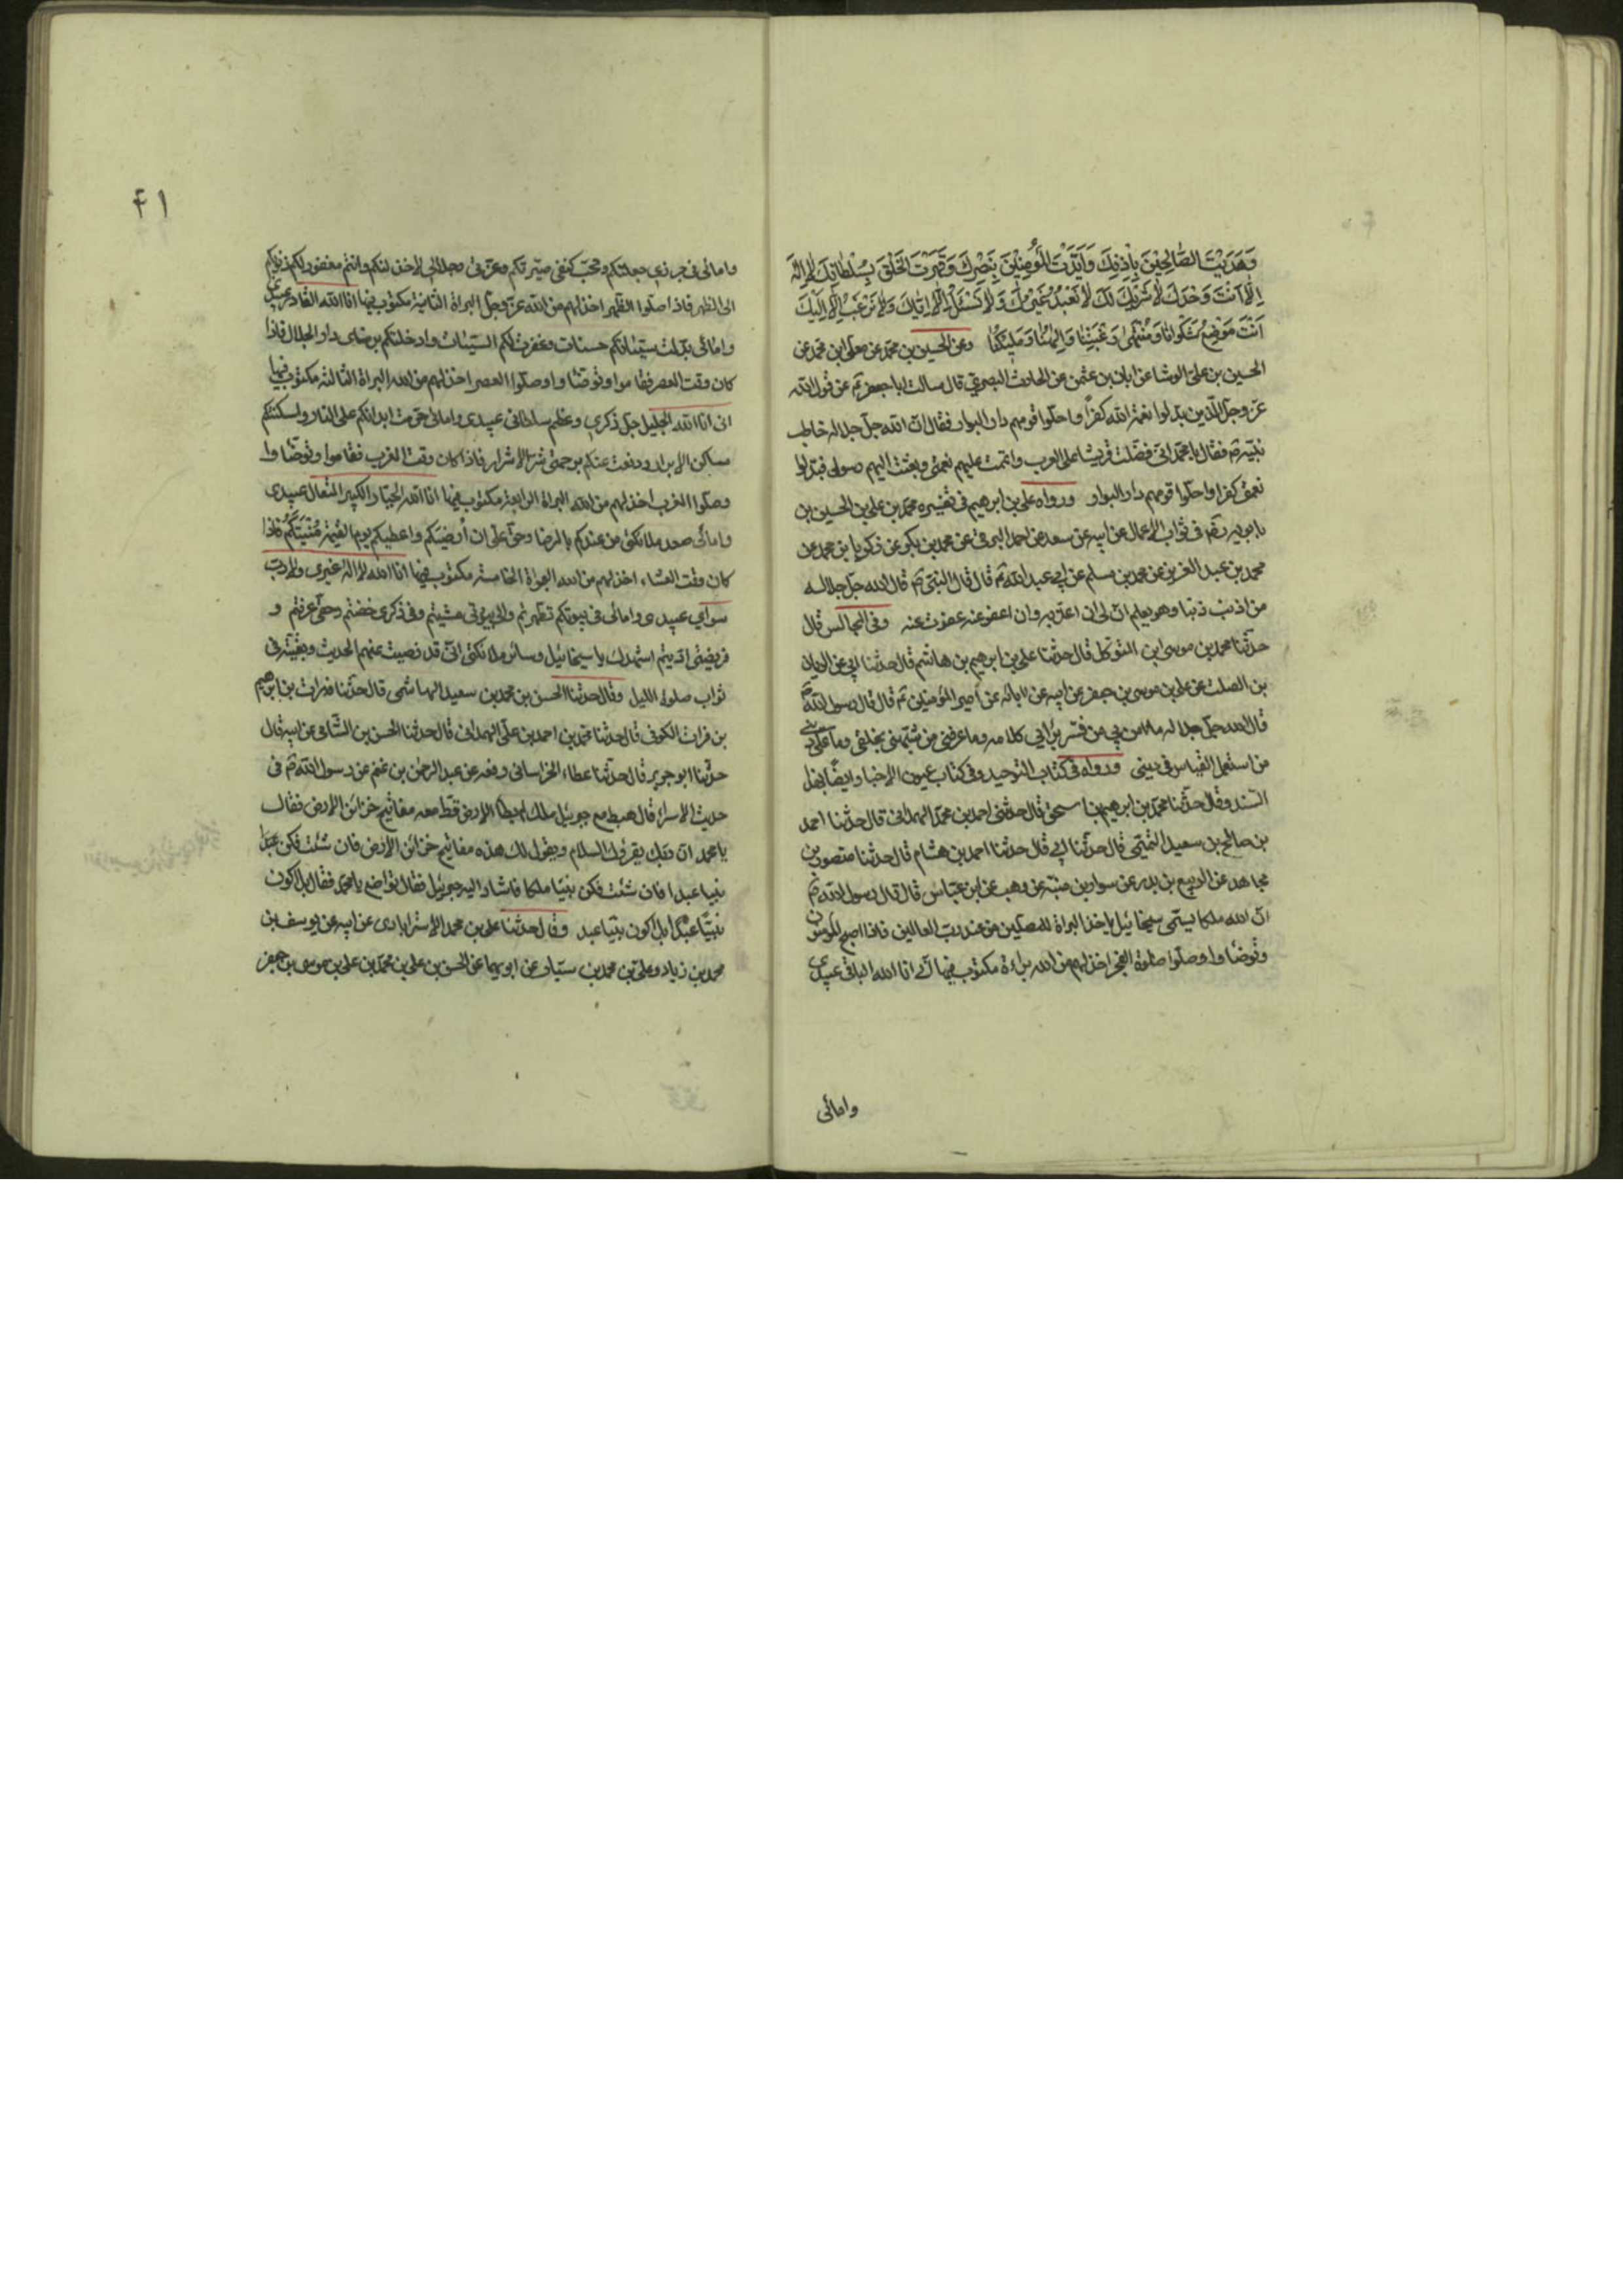 وَهَدَيْتَ الصَّالِحِيْنَ بِاِذْنِكَ وَاَيَّدْتَ الْمُؤْمِنِيْنَ بِنَصْرِكَ وَقَهَرْتَ الْخَلْقَ بِسُلْطَانِكَ لَا اِلٰهَ
اِلَّا اَنْتَ وَحْدَكَ لَا شَرِيْكَ لَكَ لَا نَعْبُدُ غَيْرَكَ وَلَا نَسْئَلُ اِلَّا اِيَّاكَ وَلَا نَرْغَبُ اِلَّا اِلَيْكَ
اَنْتَ مَوْضِعُ شَكْوَانَا وَمُنْتَهٰى رَغْبَتِنَا وَاِلٰهُنَا وَمَلِيْكُنَا وعن الحسين بن محمد عن معلى ابن محمد عن
الحسين بن على الوشا عن ابان بن عثمن عن الحارث البصرى قال سالت ابا جعفر ع عن قول الله
عز وجل الذين بدلوا نعمة الله كفرا واحلوا قومهم دار البوار فقال ان الله جل جلاله خاطب
نبيه ص فقال يا محمد انى فضلت قريشا على العرب واتممت عليهم نعمتى وبعثت اليهم رسولى فبدلوا
نعمتى كفرا واحلوا قومهم دار البوار ورواه على بن ابرهيم فى تفسيره محمد بن على بن الحسين بن
بابويه ره فى ثواب الاعمال عن ابيه عن سعد عن احمد البرقى عن محمد بن بكر عن زكريا بن محمد عن
محمد بن عبد العزيز عن محمد بن مسلم عن ابى عبد الله ع قال قال النبى ص قال الله جل جلاله
من اذنب ذنبا وهو يعلم ان لى ان اعذبه وان اعفو عنه عفوت عنه وفى المجالس قال
حدثنا محمد بن موسى ابن المتوكل قال حدثنا على بن ابرهيم بن هاشم قال حدثنا ابى عن الريان
بن الصلت عن على بن موسى بن جعفر عن ابيه عن ابائه عن امير المؤمنين ع قال قال رسول الله ص
قال الله جل جلاله ما امن بى من فسر برايه كلامى وما عرفنى من شبهنى بخلقى وما على دينى
من استعمل القياس فى دينى ورواه فى كتاب التوحيد وفى كتاب عيون الاخبار ايضا بهذا
السند وقال حدثنا محمد بن ابرهيم بن اسحق قال حدثنى احمد بن محمد الهمدانى قال حدثنا احمد
بن صالح بن سعيد التميمى قال حدثنا ابى قال حدثنا احمد بن هشام قال حدثنا منصور بن
مجاهد عن الربيع بن بدر عن سوار بن منبه عن وهب عن ابن عباس قال قال رسول الله ص
ان الله ملكا يسمى سيخائيل ياخذ البراة للمصلين من عند رب العالمين فاذا اصبح المومنون
وتوضاوا وصلوا صلوة الفجر اخذ لهم من الله براءة مكتوب فيها انى انا الله الباقى عبيدى
وامائى
۴۱
وامائى فى حرزى جعلتكم وتحت كنفى صيرتكم وعزتى وجلالى لا خذلتكم وانتم مغفور لكم ذنوبكم
الى الظهر فاذا صلوا الظهر اخذ لهم من الله عز وجل البراة الثانية مكتوب فيها انا الله القادر عبيدى
وامائى بدلت سيئاتكم حسنات وغفرت لكم السيئات وادخلتكم برضاى دار الجلال فاذا
كان وقت العصر فقاموا وتوضاوا وصلوا العصر اخذ لهم من الله البراة الثالثة مكتوب فيها
انى انا الله الجليل جل ذكرى وعظم سلطانى عبيدى وامائى حرمت ابدانكم على النار واسكنتكم
مساكن الابرار ودفعت عنكم برحمتى شر الاشرار فاذا كان وقت المغرب فقاموا وتوضاوا
وصلوا المغرب اخذ لهم من الله البراة الرابعة مكتوب فيها انا الله الجبار الكبير المتعال عبيدى
وامائى صعد ملائكتى من عندكم بالرضا وحق على ان ارضيكم واعطيكم يوم القيمة منيتكم فاذا
كان وقت العشاء اخذ لهم من الله البراة الخامسة مكتوب فيها انا الله لا اله غيرى ولا رب
سواى عبيدى وامائى فى بيوتكم تطهرتم والى بيوتى مشيتم وفى ذكرى خضتم وحقى عرفتم و
فريضتى اديتم اشهدك يا سيخائيل وسائر ملائكتى انى قد رضيت عنهم الحديث وبقيته فى
ثواب صلوة الليل وقال حدثنا الحسن بن محمد بن سعيد الهاشمى قال حدثنا فرات بن ابرهيم
بن فرات الكوفى قال حدثنا محمد بن احمد بن على الهمدانى قال حدثنا الحسن بن الشامى عن ابيه قال
حدثنا ابو جرير قال حدثنا عطاء الخراسانى رفعه عن عبد الرحمن بن غنم عن رسول الله ص فى
حديث الاسراء قال هبط مع جبرئيل ملك لم يطا الارض قط معه مفاتيح خزائن الارض فقال
يا محمد ان ربك يقرئك السلام ويقول لك هذه مفاتيح خزائن الارض فان شئت فكن عبدا
نبيا عبدا فان شئت فكن نبيا ملكا فاشار اليه جبرئيل فقال تواضع يا محمد فقال بل اكون
نبيا عبدا بل اكون نبيا عبد وقال حدثنا على بن محمد الاسترابادى عن ابيه عن يوسف بن
محمد بن زياد وعلى بن محمد بن سيار عن ابويهما عن الحسن بن على بن محمد بن على بن موسى بن جعفر